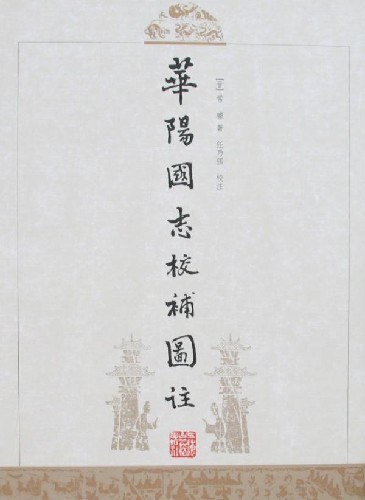 華陽國志校補圖註
[晉]常璩著 任乃強 校注